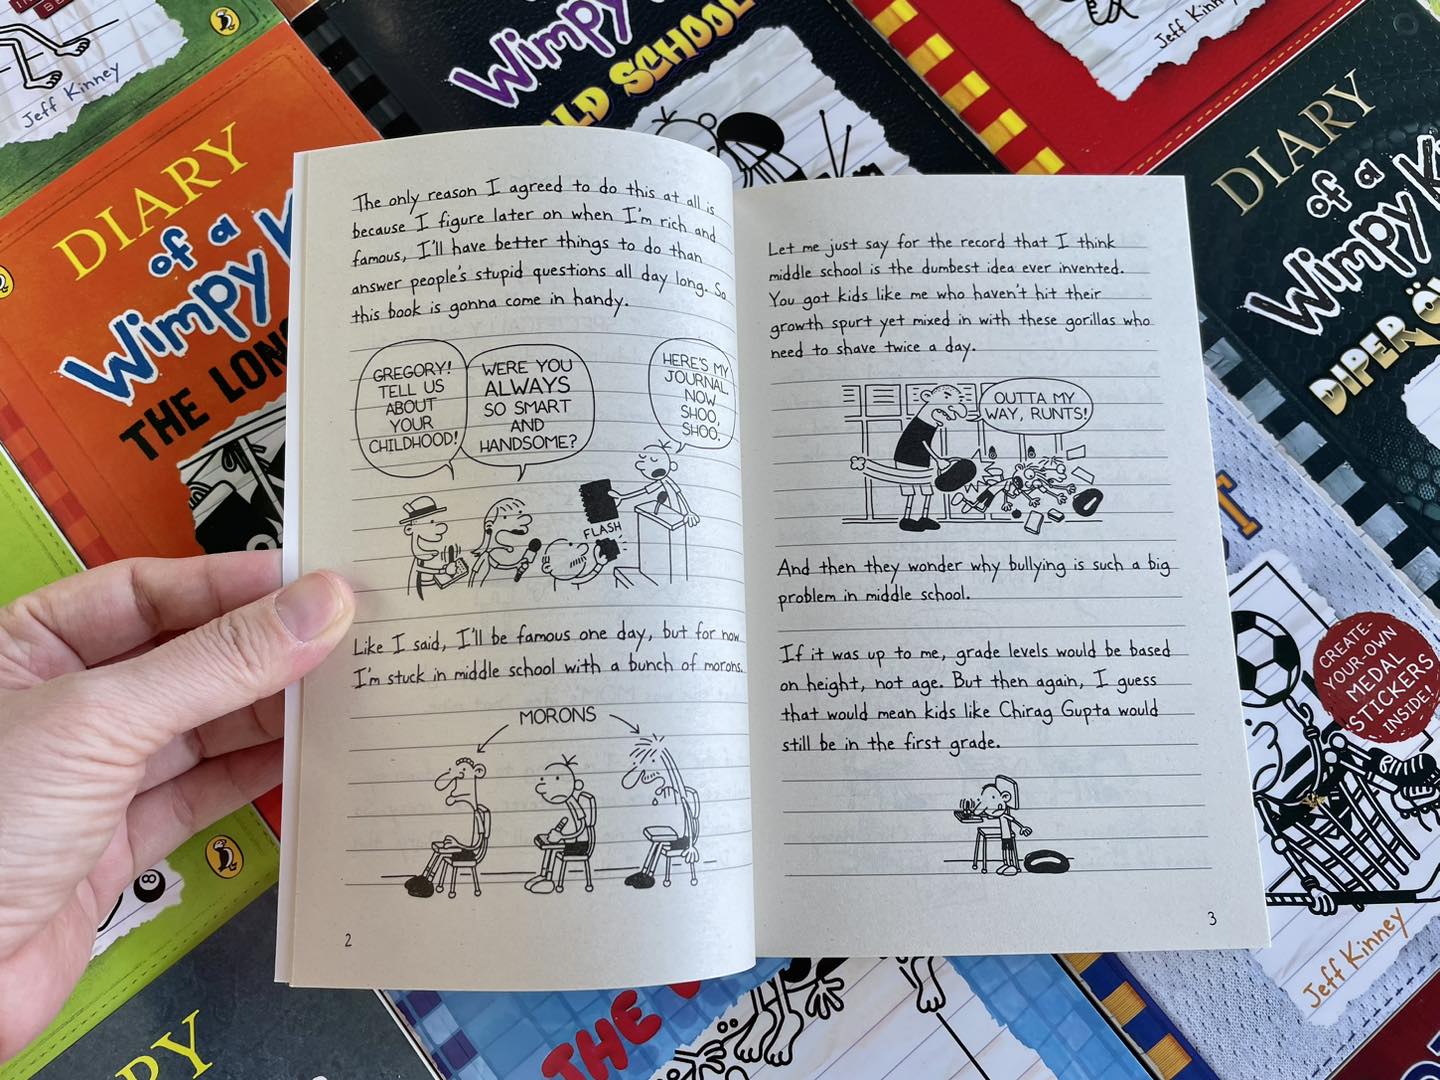 Jeff Kinney
DIARY
of a
Wimpy
THE LON
Wimpy
LD SCHOOL
Jeff Kinney
DIARY
of a
Wimpy
DIPER ÖV
The only reason I agreed to do this at all is
because I figure later on when I'm rich and
famous, I'll have better things to do than
answer people's stupid questions all day long. So
this book is gonna come in handy.
GREGORY!
TELL US
ABOUT
YOUR
CHILDHOOD!
WERE YOU
ALWAYS
SO SMART
AND
HANDSOME?
HERE'S MY
JOURNAL
NOW
SHOO,
SHOO.
FLASH
Like I said, I'll be famous one day, but for now
I'm stuck in middle school with a bunch of morons.
MORONS
2
Let me just say for the record that I think
middle school is the dumbest idea ever invented.
You got kids like me who haven't hit their
growth spurt yet mixed in with these gorillas who
need to shave twice a day.
OUTTA MY
WAY, RUNTS!
And then they wonder why bullying is such a big
problem in middle school.
If it was up to me, grade levels would be based
on height, not age. But then again, I guess
that would mean kids like Chirag Gupta would
still be in the first grade.
3
CREATE-
YOUR-OWN
MEDAL
STICKERS
INSIDE!
Jeff Kinney
THE
8